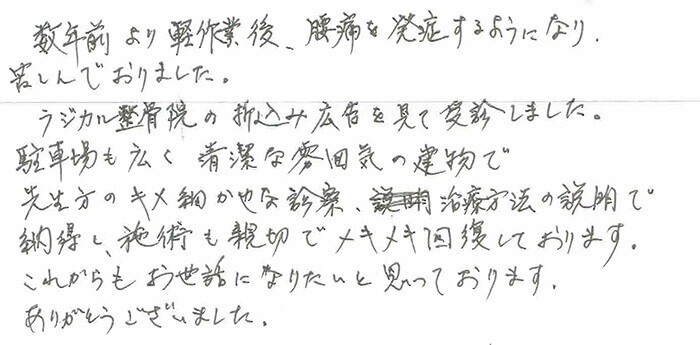 数年前より軽作業後、腰痛を発症するようになり、
苦しんでおりました。
ラジカル整骨院の折込み広告を見て受診しました。
駐車場も広く 清潔な雰囲気の建物で
先生方のキメ細かせな診察、治療方法の説明で
納得し、施術も親切でメキメキ回復しております。
これからもお世話になりたいと思っております。
ありがとうございました。